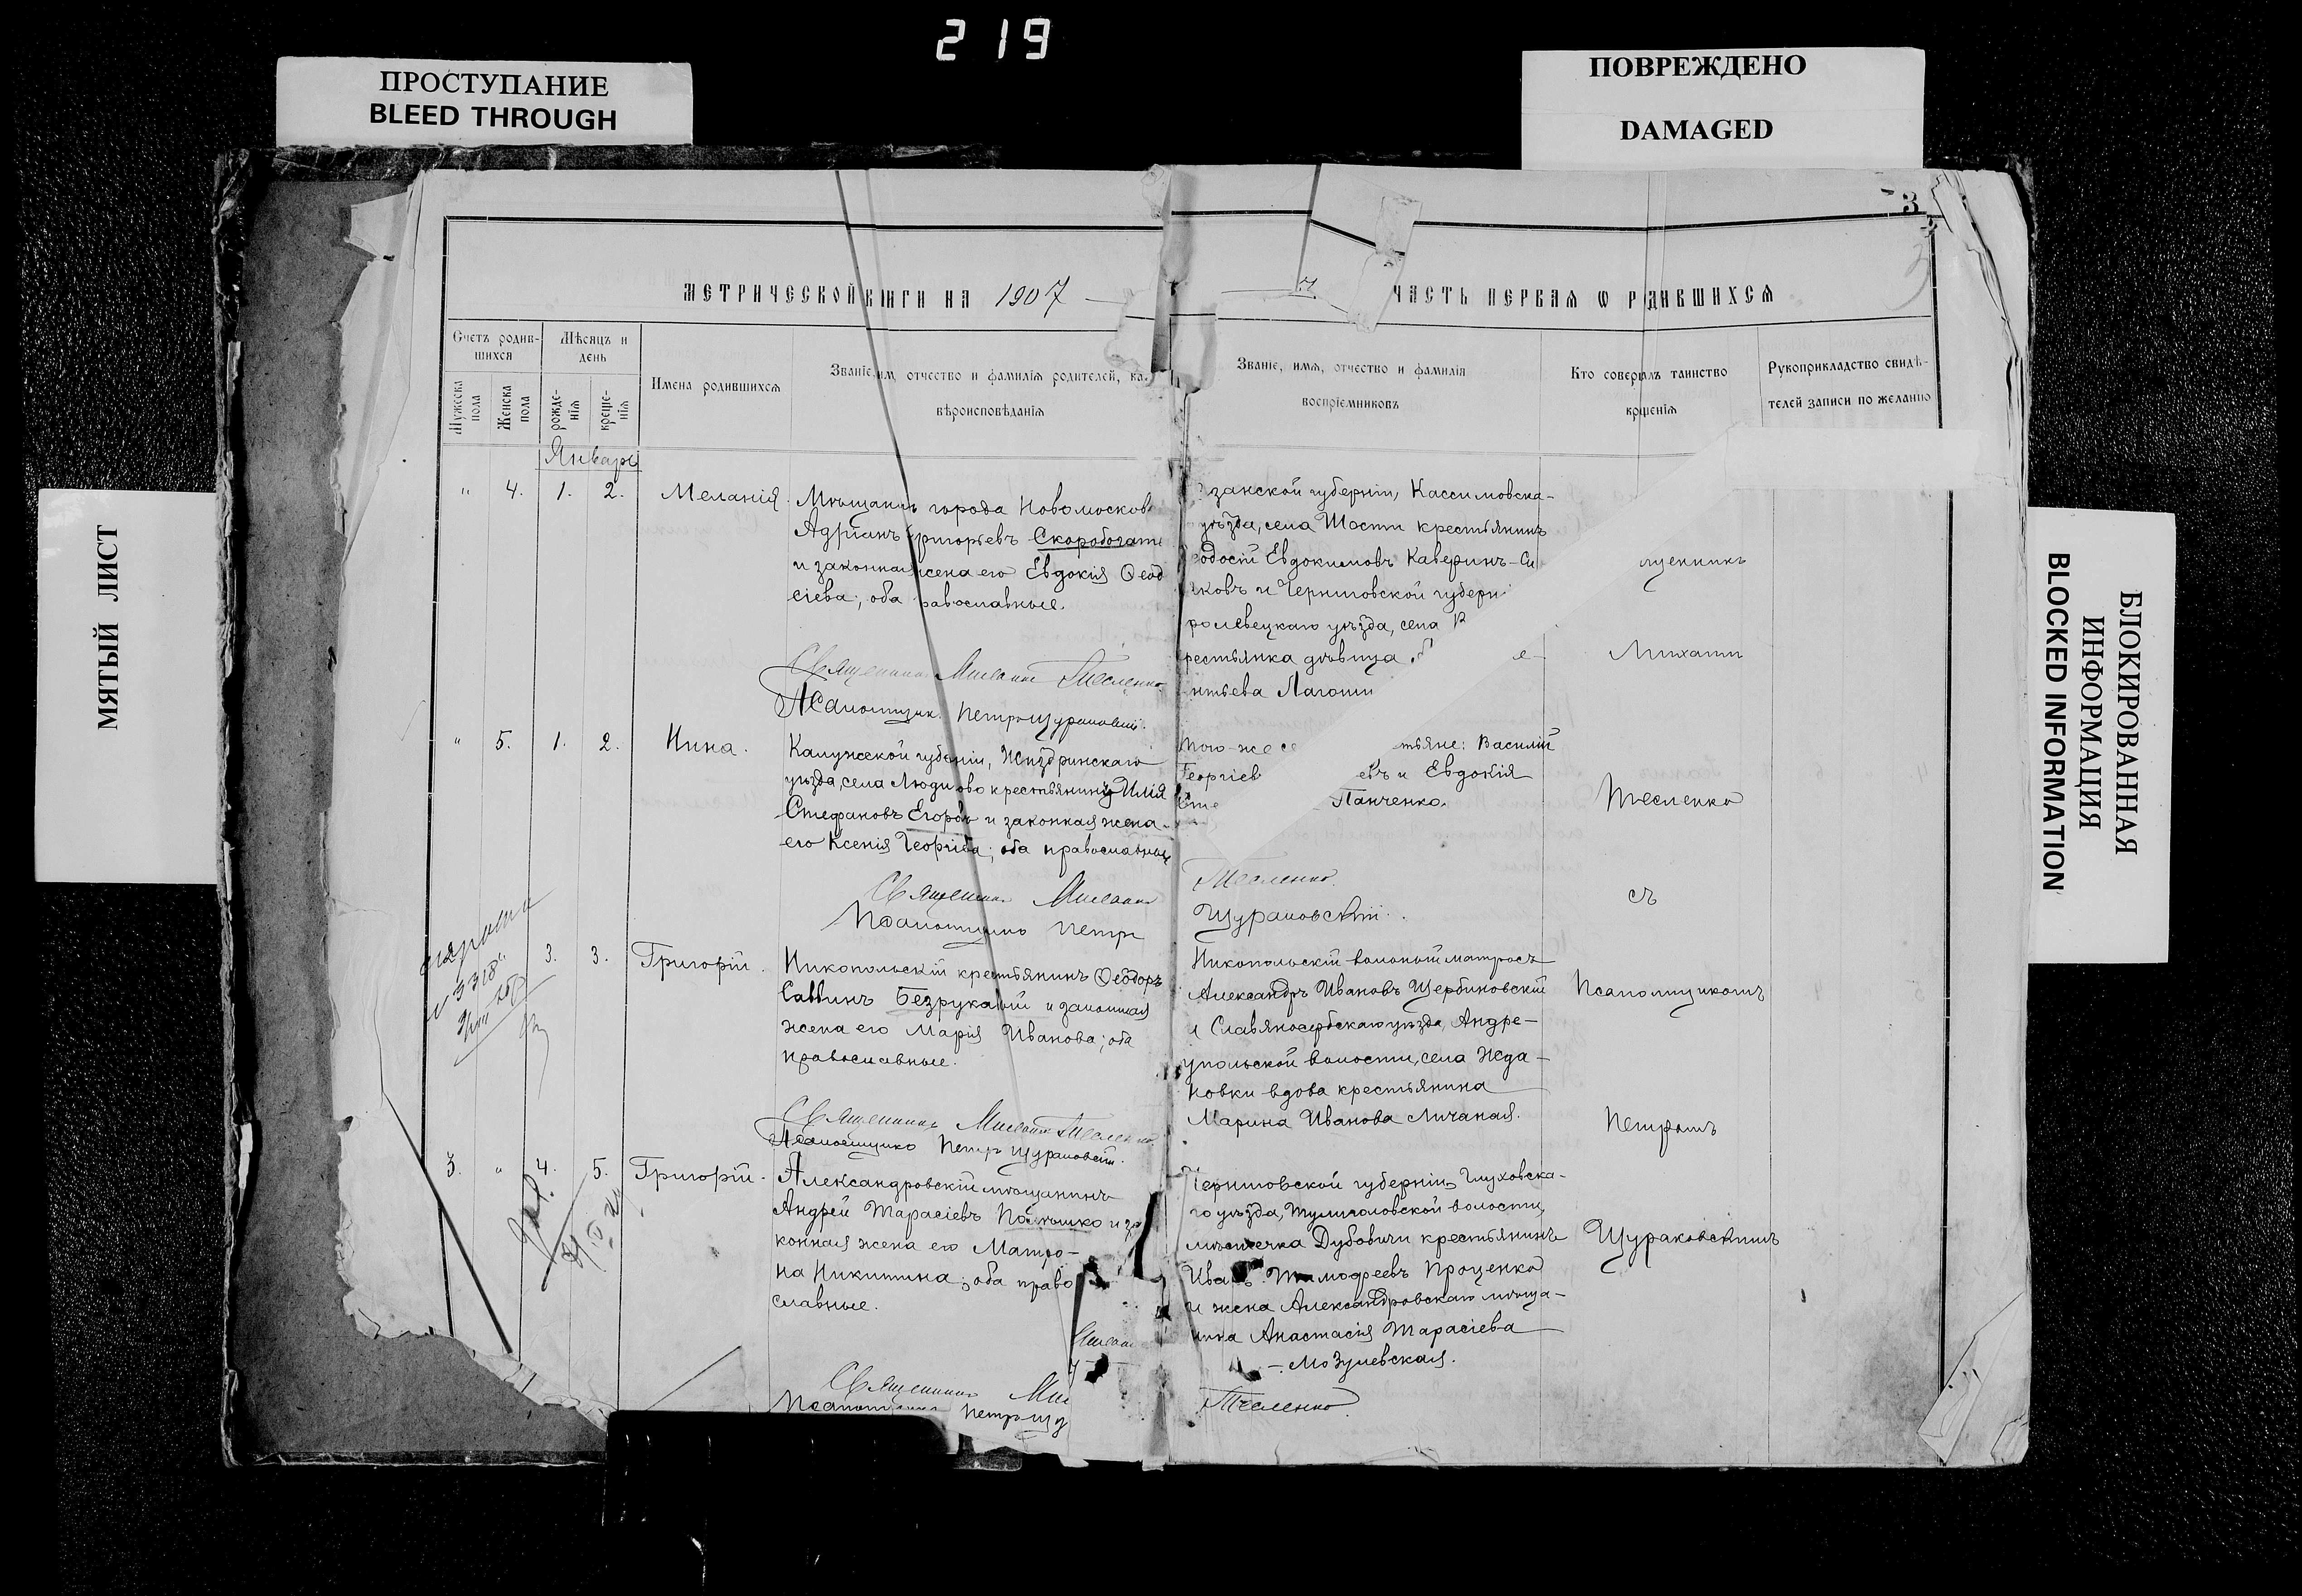 219
ПРОСТУПАНИЕ
BLEED THROUGH
ПОВРЕЖДЕНО
DAMAGED
МЯТЫЙ ЛИСТ
БЛОКИРОВАННАЯ
ИНФОРМАЦИЯ
BLOCKED INFORMATION
3
МЕТРИЧЕСКОЙ КНИГИ НА 1907
ЧАСТЬ ПЕРВАЯ Ѡ РОДИВШИХСЯ
Счетъ родив-
шихся
Мужеска
пола
Женска
пола
Мѣсяцъ и
день
рожде-
нія
креще-
нія
Имена родившихся
Званіе, им, отчество и фамилія родителей, ка
вѣроисповѣданія
Званіе, имя, отчество и фамилія
воспріемниковъ
Кто соверилъ таинство
крщенія
Рукоприкладство свидѣ-
телей записи по желанію
Январь
" 4. 1. 2. Меланія.
Мѣщанинъ города Новомосков
Адріанъ Григорьевъ Скоробогат
и законная жена его Евдокія Ѳеод
сіева; оба равославные.
Священникъ Михаилъ Тесленко.
Псаломщик. Петръ Щураковскій.
занской губерніи, Кассимовска-
уѣзда, села Шости крестьянинъ
одосій Евдокимовъ Каверинъ-Си
ковъ и Черниговской губерн
ролевецкаго уѣзда, села
рестьянка дѣвица
нтьева Лагоши
щенникъ
Михаил
" 5. 1. 2. Нина.
Калужской губерніи, Жиздринскаго
уѣзда, села Людиново крестьянинъ Илія
Стефановъ Егоровъ и законная жена
его Ксенія Георгіева; оба православные
Священникъ Михаилъ
Тесленко.
Псаломщикъ Петръ
Щураковскій.
того-же се тьяне: Василій
Георгіев евъ и Евдокія
Сте Панченко.
Тесленко
съ
3. 3. Григорій.
Никопольскій крестьянинъ Ѳеодоръ
Саввинъ Безрукавый и законная
жена его Марія Иванова; оба
православные.
Священникъ Михаилъ Тесленко.
Псаломщикъ Петръ Щураковскій.
Никопольскій вольный матросъ
Александръ Ивановъ Щербиновскій
и Славяносербскаго уѣзда, Андре-
упольской волости, села Жда-
новки вдова крестьянина
Марина Иванова Личаная.
Псаломщикомъ
Петромъ
3. " 4. 5. Григорій.
Александровскій мѣщанинъ
Андрей Тарасіевъ и за
конная жена его Матро-
на Никитина; оба право
славные.
Священникъ Мих
Тесленко.
Петръ Щу
Черниговской губерніи, Глуховска-
го уѣзда, Тулиголовской волости,
мѣстечка Дубовичи крестьянинъ
Иванъ Тимофеевъ Проценко
и жена Александровскаго мѣща-
нина Анастасія Тарасіева
Мозулевская.
Щураковскимъ